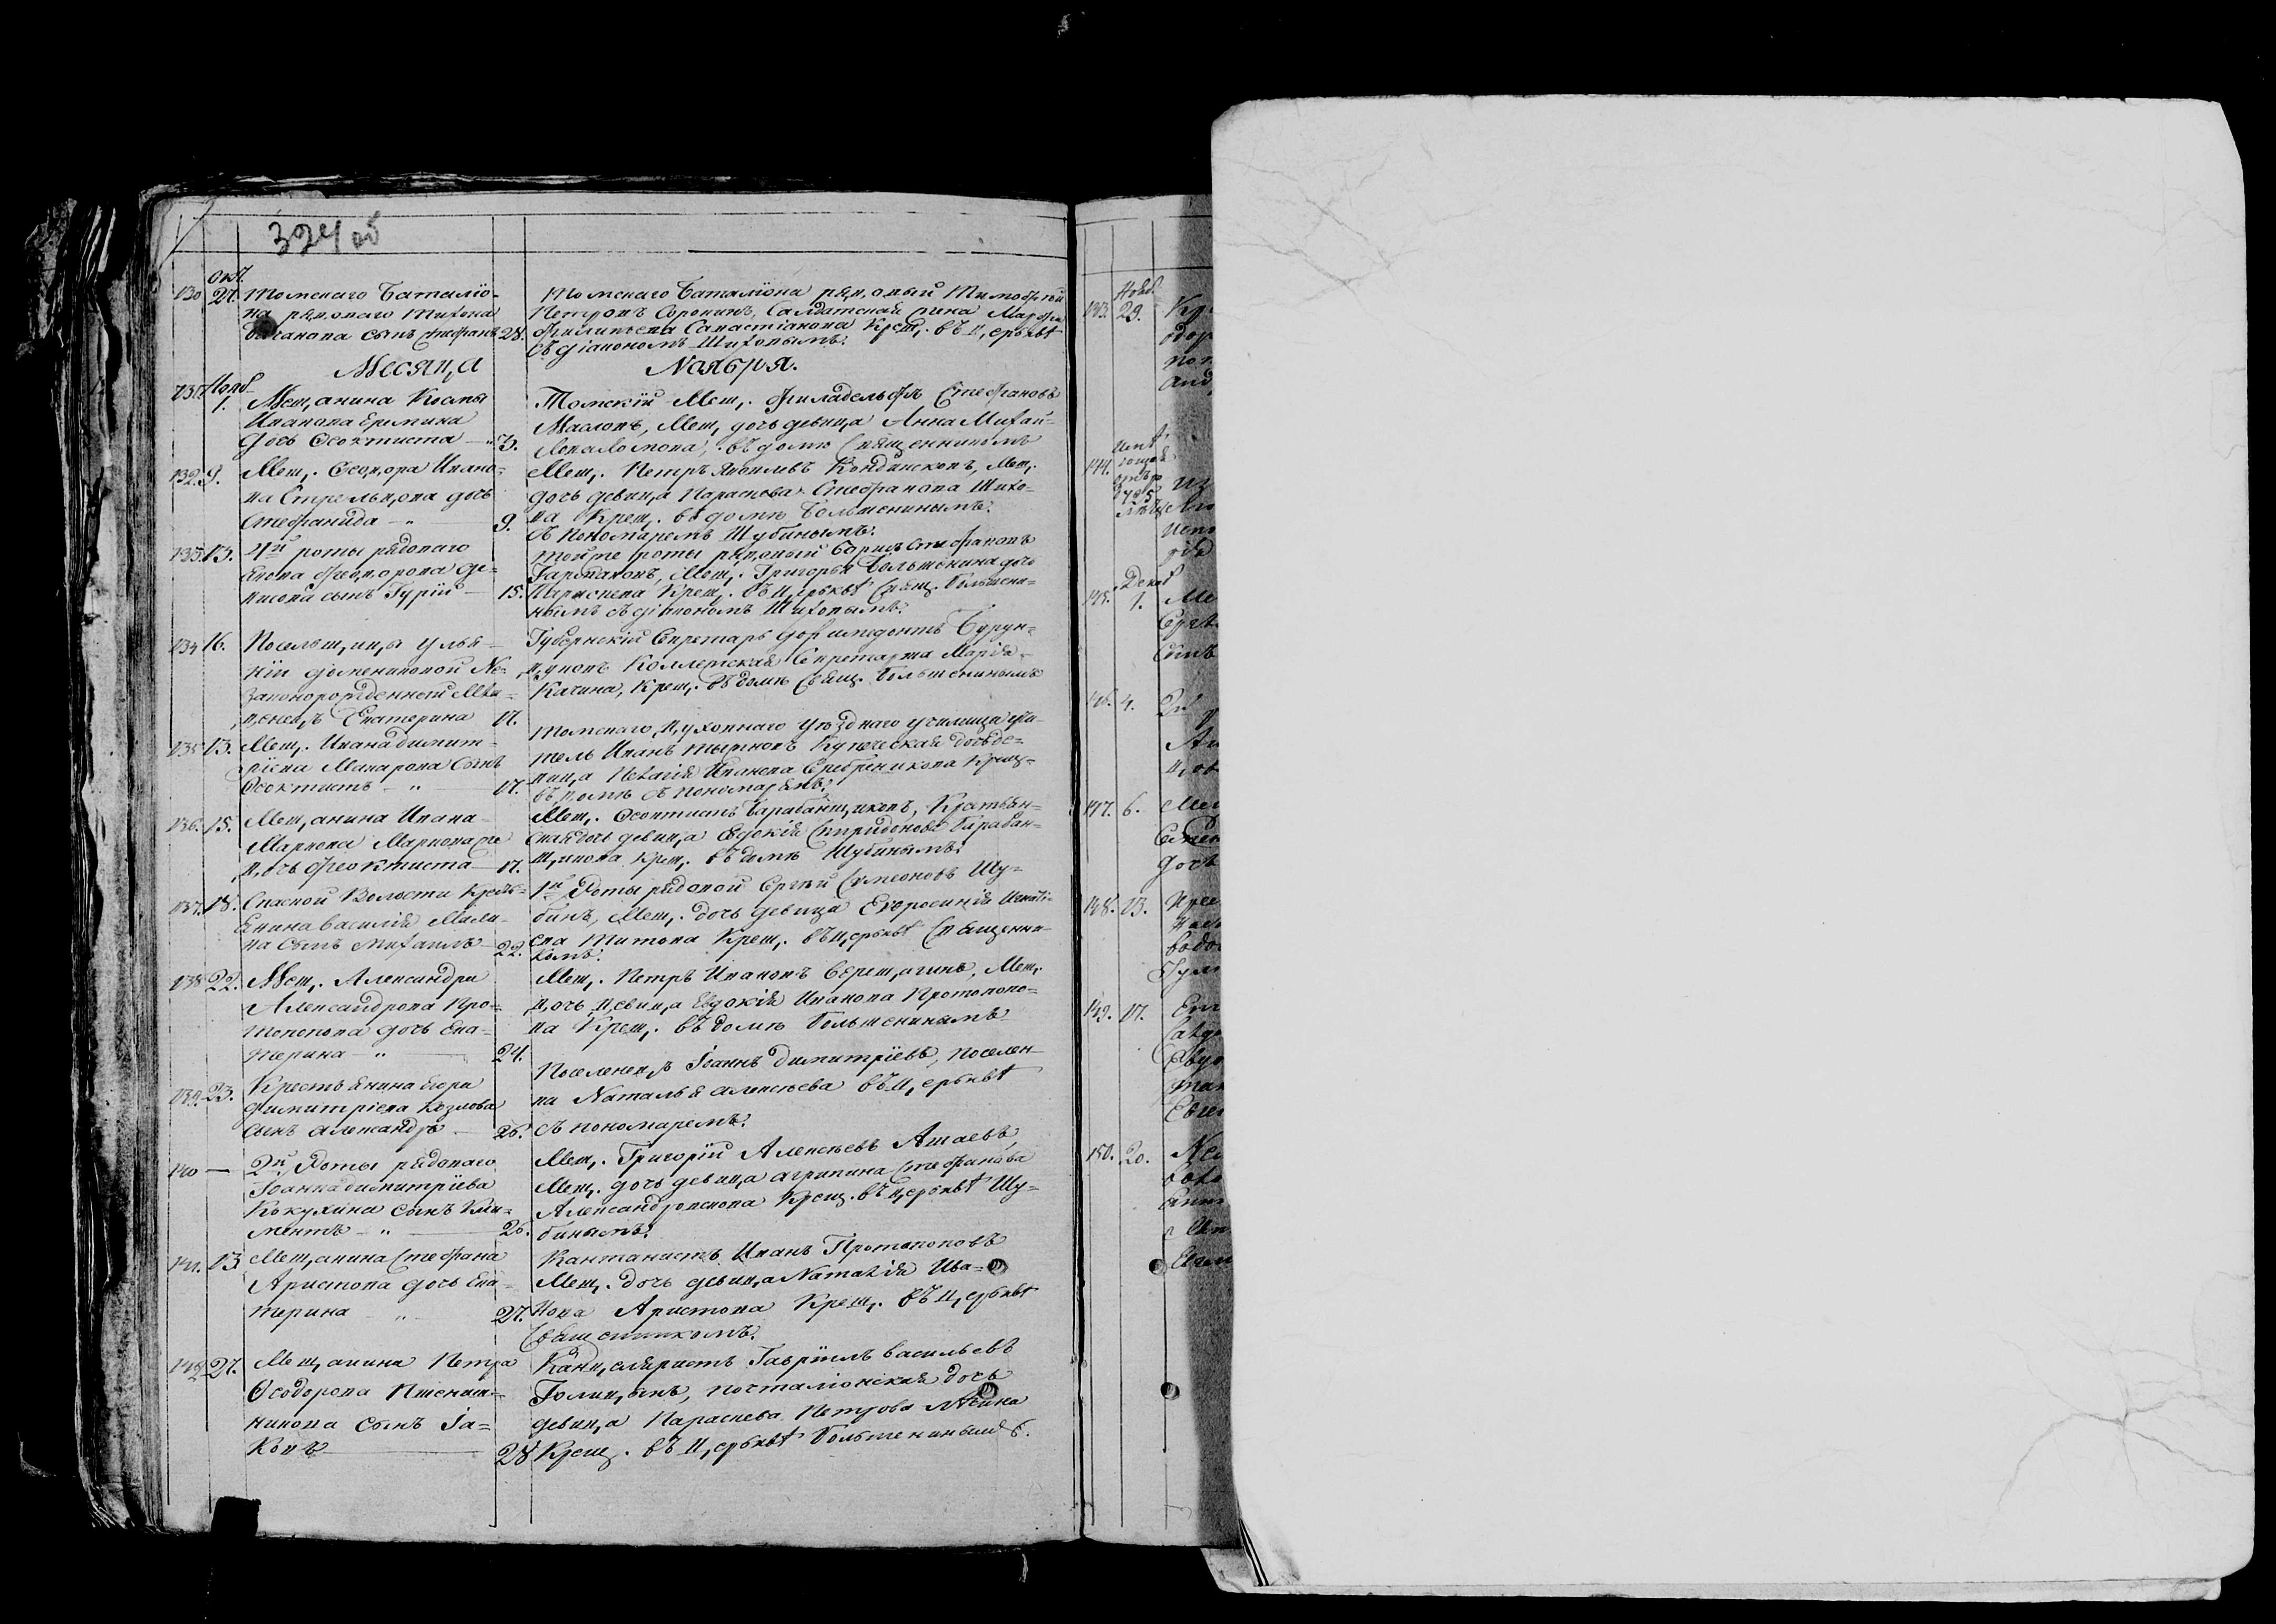 324 об
Окт.
130 27. Томскаго Баталiо-
на рядоваго Тихона
сынъ Стефанъ 28.
Томскаго Баталiона рядовый Тимофей
Петровъ Сорокинъ, Салдатская жена Марфа
Филипьева Савастiанова Крещ. въ церкве
съ дiакономъ Шиховымъ.
Месяца Ноября.
Нояб.
131 1. Мещанина Космы
Иванова Еремина
дочь Ѳеоктиста — " 3.
Томскiй Мещ. Филадельфъ Стефановъ
Масловъ, Мещ. дочь девица Анна Михай-
лова въ доме Священникомъ
132. 9. Мещ. Ѳеодора Ивано-
ва Стрельцова дочь
Стефанида — " 9.
Мещ. Петръ Яковлевъ Кондинсковъ, Мещ.
дочь девица Параскева Стефанова Шихо-
ва Крещ. въ доме Больженинымъ
съ Пономаремъ Шубинымъ.
133. 13. 4й роты рядоваго
Якова Федорова Де-
нисова сынъ Гурiй — 15.
тойже роты рядовый Борисъ Стефановъ
Мещ. Григорья Больженина дочь
Параскева Крещ. въ церкве Свящ. Больжени-
нымъ съ дiакономъ Шиховымъ.
134 16. Посельщицы Улья-
нiи Доменниковой Не-
законорожденной Мла-
денецъ Екатерина 17.
Губернскiй Секретарь Доримедонтъ Бурун-
дуковъ Коллежская Секретарша Марiя
Качина, Крещ. въ доме Свящ. Больженинымъ
135 13. Мещ. Ивана Димит-
рiева Макарова Сынъ
Ѳеоктистъ — " 17.
Томскаго Духовнаго уезднаго училища учи-
тель Иванъ Тыжновъ Купеческая дочь де-
вица Пелагiя Иванова Серебреникова Крещ-
въ доме съ пономаремъ.
136. 15. Мещанина Ивана
Маркова Маркова же
дочь Феоктиста — 17.
Мещ. Ѳеоктистъ Барабанщиковъ, Крестьян-
ская дочь девица Евдокiя Спиридонова Барабан-
щикова Крещ. въ доме Шубинымъ.
137. 18. Спаской Волости Кресть-
янина Василiя Мали-
на сынъ Михаилъ — 22.
1й Роты рядовой Сергей Симеоновъ Шу-
бинъ, Мещ. дочь девица Евфросинiя Игнатi-
ева Титова Крещ. въ церкве Священни-
комъ.
138 22. Мещ. Александра
Александрова Про-
топопова дочь Ека-
терина — " — 24.
Мещ. Петръ Ивановъ Верещагинъ, Мещ.
дочь девица Евдокiя Иванова Протопопо-
ва Крещ. въ доме Больженинымъ
139. 23. Крестьянина Егора
Димитрiева Козлова
сынъ Александръ — 26.
Поселенецъ Iоаннъ Димитрiевъ, поселен-
ка Наталья Алексеева въ церкве
съ пономаремъ.
140 — 2й Роты рядоваго
Iоанна Димитрiева
Кокухина сынъ Кли-
ментъ — " — 26.
Мещ. Григорiй Алексеевъ Ашаевъ,
Мещ. дочь девица Агрипина Стефанова
Александровскова Крещ. въ церкве Шу-
бинымъ.
141. 13 Мещанина Стефана
Аристова дочь Ека-
терина " 27.
Кантанистъ Иванъ Протопоповъ
Мещ. дочь девица Наталiя Ива-
нова Аристова Крещ. въ церкве
Священникомъ.
142 27. Мещанина Петра
Ѳеодорова Пшенич-
никова сынъ Iа-
ковъ — 28
Канцеляристъ Гаврiилъ Васильевъ
Голицынъ, почталiонская дочь
девица Параскева Петрова
Крещ. въ церкве Больженинымъ.
Нояб.
143. 29. Кр
144.
Декаб
145. 1. Ме
146. 4. 2й
147. 6. Мещ
дочь
148. 13.
149. 17.
150. 20.